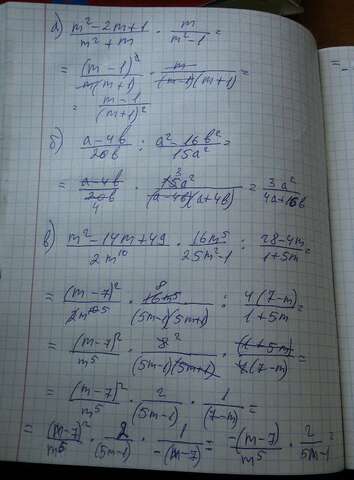 а) (m²-2m+1)/(m²+m) · m/(m²-1) =
= (m-1)²/(m(m+1)) · m/((m-1)(m+1)) =
= (m-1)/(m+1)²
б) (a-4b)/(20b) : (a²-16b²)/(15a²) =
= (a-4b)/(20b) 4 · 3 15a²/((a-4b)(a+4b)) = 3a²/(4a+16b)
в) (m²-14m+49)/(2m¹⁰) · 16m⁵/(25m²-1) : (28-4m)/(1+5m) =
= (m-7)²/(2m¹⁰ 5) · 8 16m⁵/((5m-1)(5m+1)) : 4(7-m)/(1+5m) =
= (m-7)²/m⁵ · 8 2/((5m-1)(5m+1)) · (1+5m)/(4(7-m)) =
= (m-7)²/m⁵ · 2/(5m-1) · 1/(7-m) =
= (m-7)²/m⁵ · 2/(5m-1) · 1/(-(m-7)) = -(m-7)/m⁵ · 2/(5m-1) =